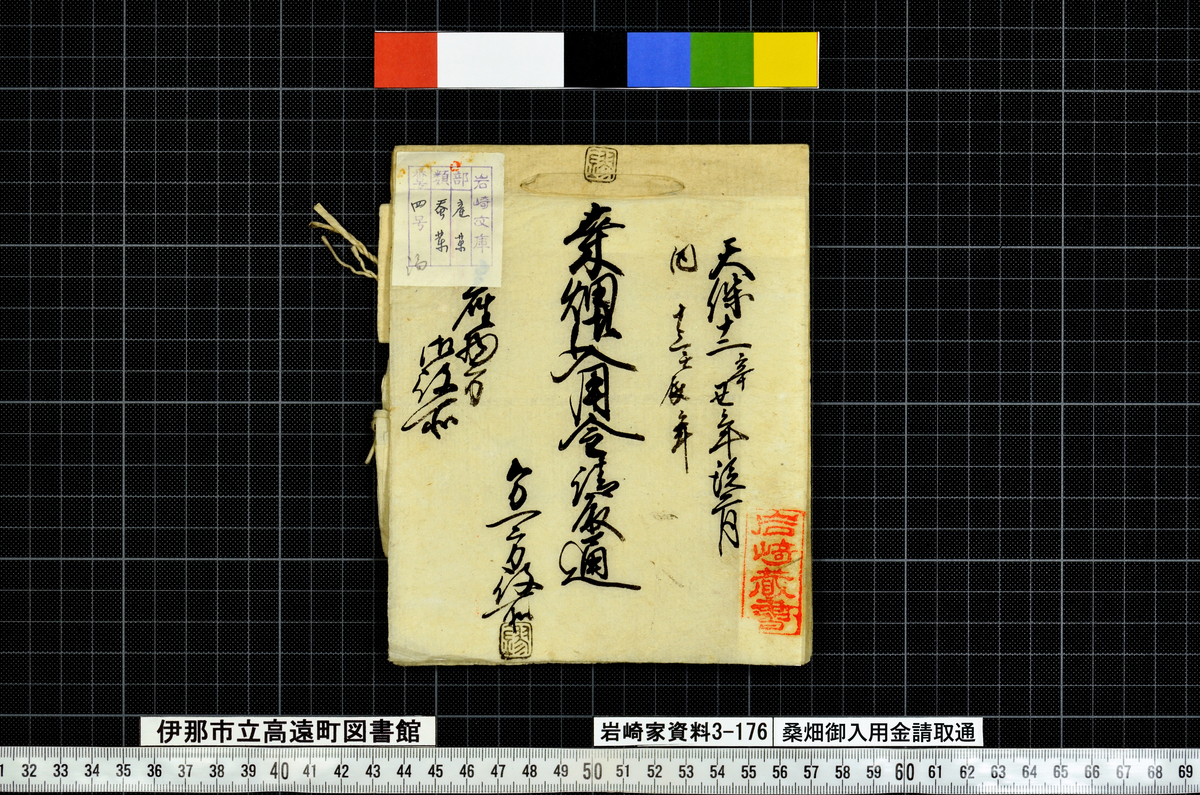 天保十二辛丑年従二月
同 十三壬辰年
桑畑御入用金請取通
会所
産物方
御役所
岩崎文庫
部 産業
類 蚕業
第四号
岩崎蔵書
伊那市立高遠町図書館
岩崎家資料3-176 桑畑御入用金請取通
1 32 33 34 35 36 37 38 39 40 41 42 43 44 45 46 47 48 49 50 51 52 53 54 55 56 57 58 59 60 61 62 63 64 65 66 67 68 69